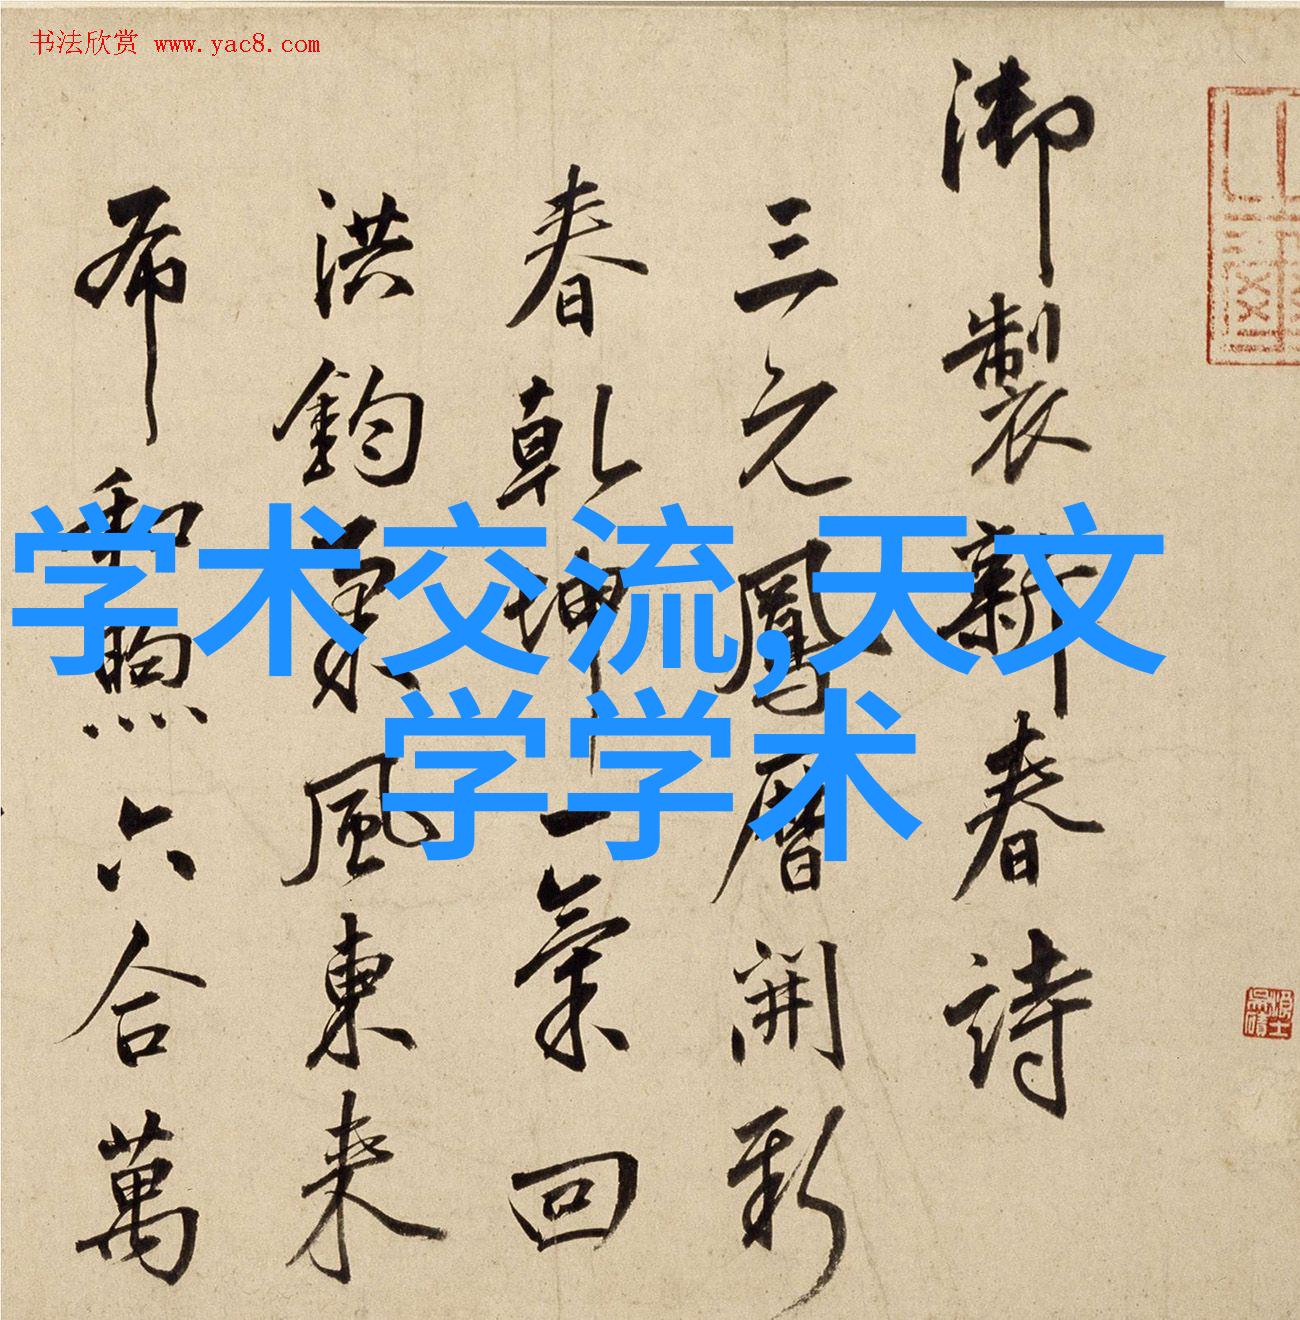 书法欣赏 www.yac8.com
学术交流,天文
学学术
御製新春詩
三元鳳曆開新
春乾坤一氣回
洪鈞風東来
布和煦六合萬